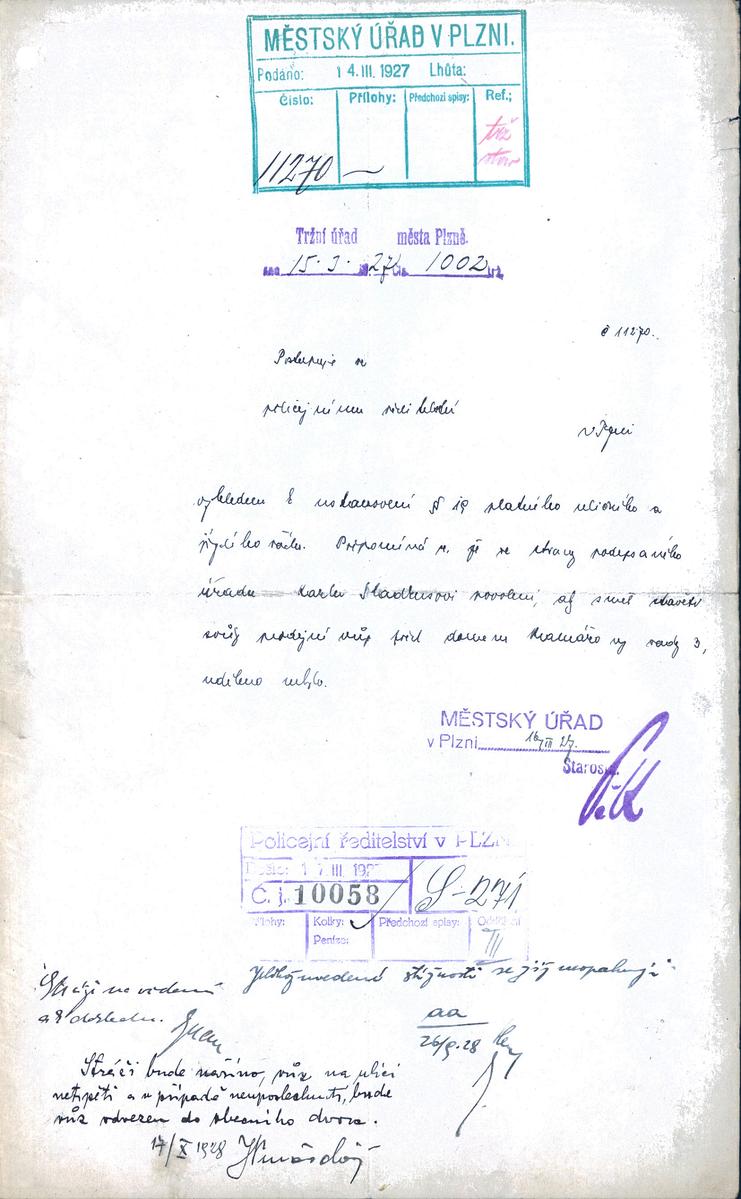 MĚSTSKÝ ÚŘAD V PLZNI.
Podáno: 14.III.1927 Lhůta:
Číslo: Přílohy: Předchozí spisy: Ref.;
11270 —
trž
stav
Tržní úřad města Plzně.
dne 15.3. 1927 čís. 1002 trž.
č 11270.
Postupuje se
policejnímu ředitelství
v Plzni
vzhledem k ustanovení § 19 platného uličního a
jízdního řádu. Připomíná se, že se strany podepsaného
úřadu Karlu Sladkusovi povolení, aby směl stavěti
svůj prodejní vůz před domem Kramářovy sady 3,
uděleno nebylo.
MĚSTSKÝ ÚŘAD
v Plzni 16/III 27.
Starosta:
Policejní ředitelství v PLZNI
Došlo: 17.III.1927
Č. j. 10058 S-271
Přílohy: Kolky: Předchozí spisy: Oddělení
Peníze: III
Stráži na vědomí
a k dohledu.
Jelikož uvedené stížnosti se již neopakují
aa
26/9.28
Stráži bude nařízeno, vůz na ulici
netrpěti a v případě neuposlechnutí, bude
vůz odvezen do obecního dvora.
17/X 1928